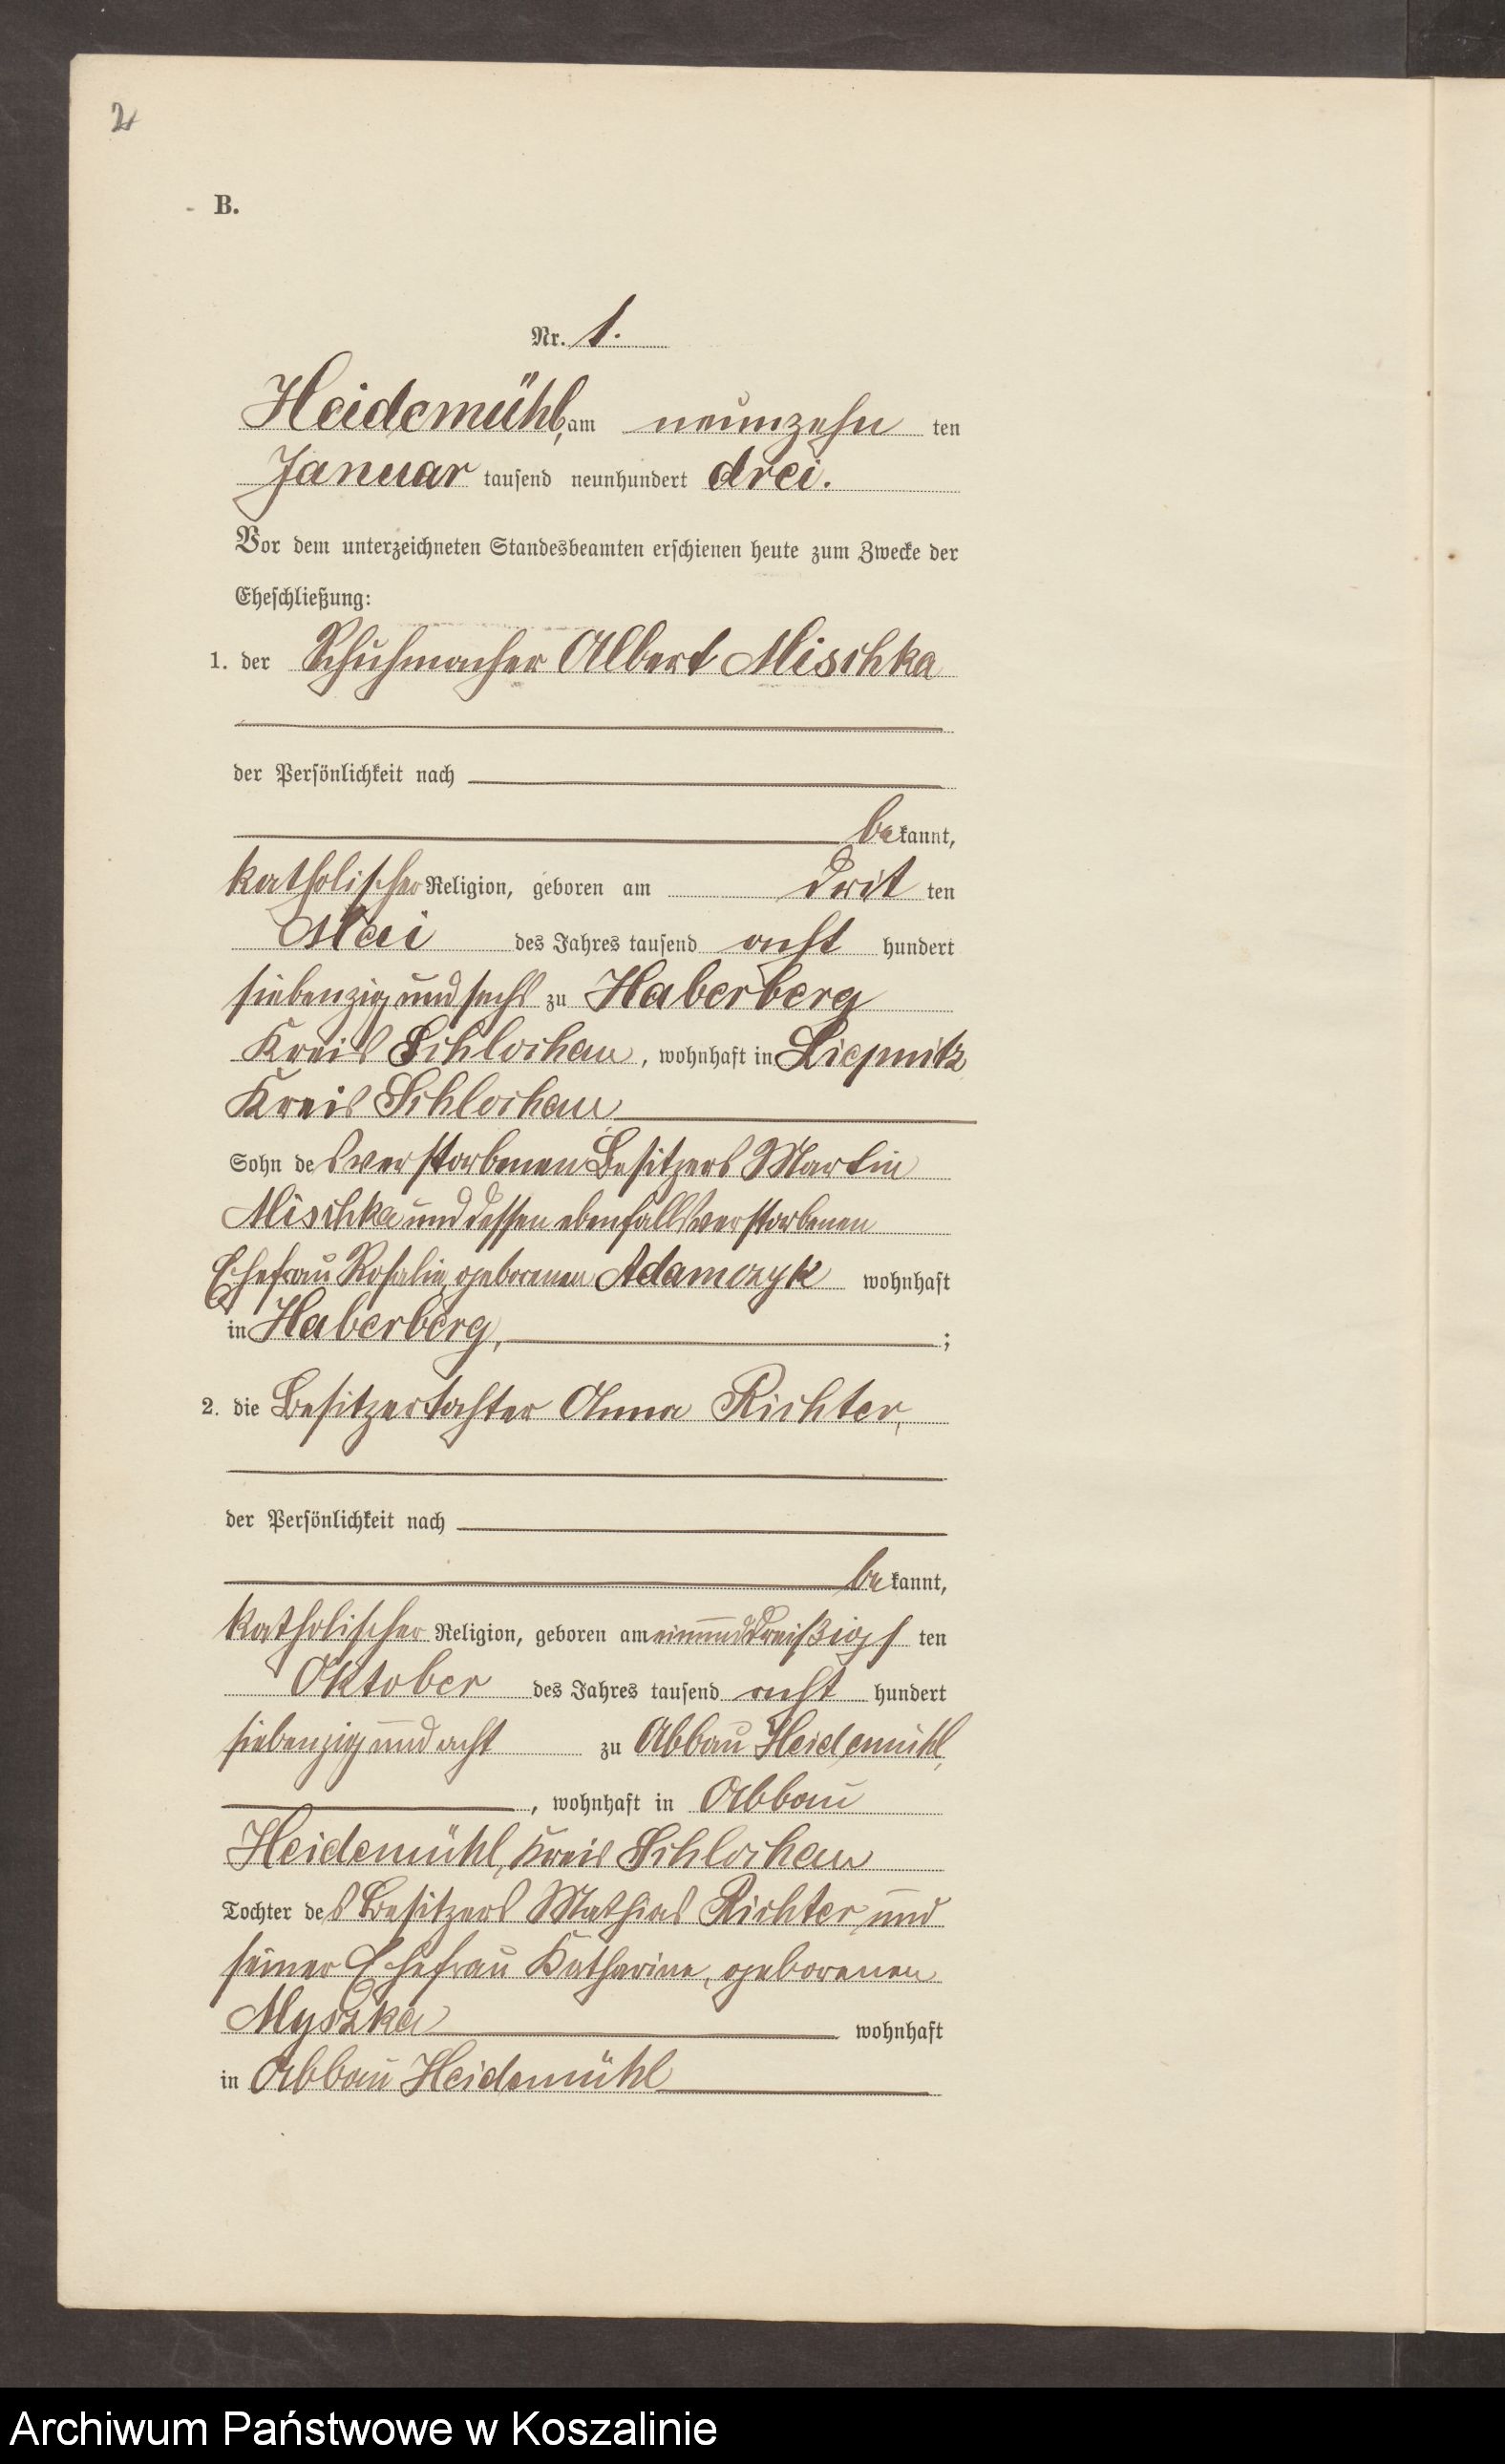 2
B.
Nr. 1.
Heidemühl, am neunzehn ten
Januar tausend neunhundert drei.
Vor dem unterzeichneten Standesbeamten erschienen heute zum Zwecke der
Eheschließung:
1. der Schuhmacher Albert Mischka
der Persönlichkeit nach
bekannt,
katholischer Religion, geboren am drit ten
Mai des Jahres tausend acht hundert
siebenzig und sechs zu Haberberg
Kreis Schlochau, wohnhaft in Liepnitz
Kreis Schlochau
Sohn des verstorbenen Besitzers Martin
Mischka und dessen ebenfalls verstorbenen
Ehefrau Rosalie, geborenen Adamczyk wohnhaft
in Haberberg, ;
2. die Besitzertochter Anna Richter,
der Persönlichkeit nach
bekannt,
katholischer Religion, geboren am einunddreißigs ten
Oktober des Jahres tausend acht hundert
siebenzig und acht zu Abbau Heidemühl,
, wohnhaft in Abbau
Heidemühl, Kreis Schlochau
Tochter des Besitzers Mathias Richter und
seiner Ehefrau Katharine, geborenen
Myszka wohnhaft
in Abbau Heidemühl
Archiwum Państwowe w Koszalinie